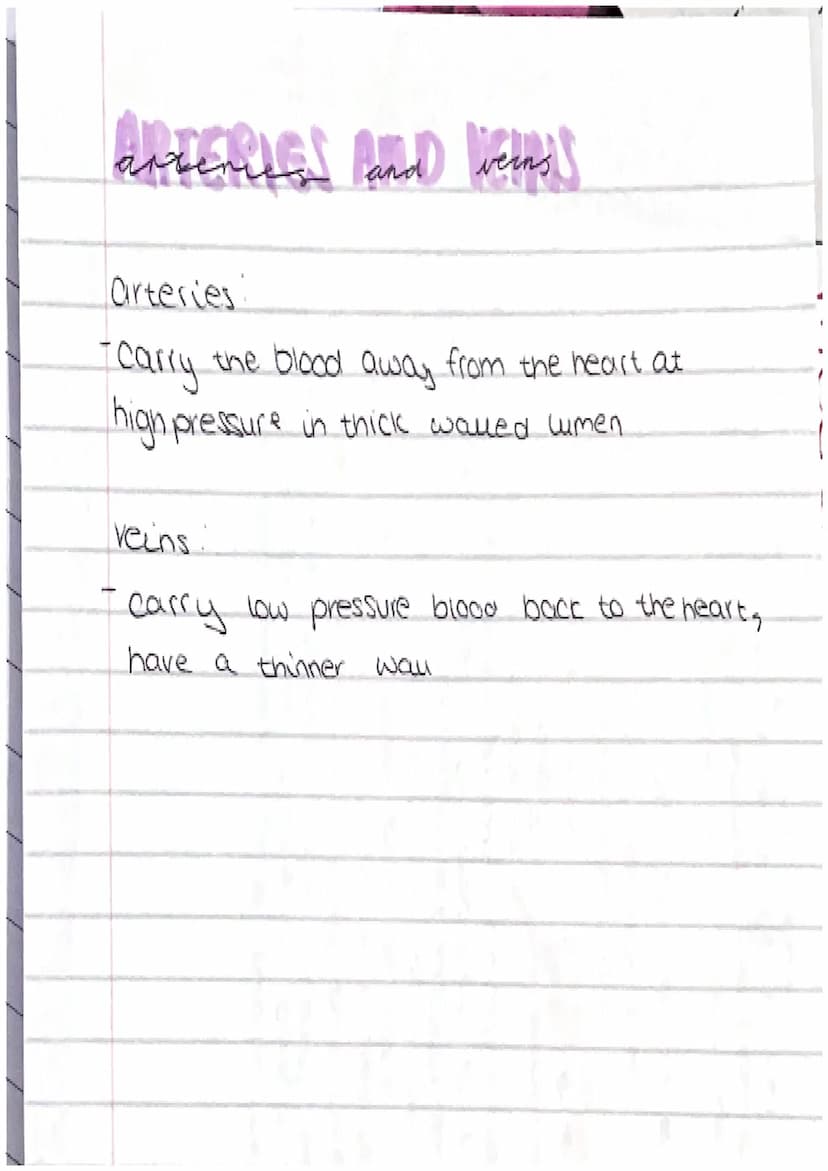 ARTERIES AND VEINS
arteries and veins
arteries:
- Carry the blood away from the heart at
high pressure in thick walled lumen
veins:
- carry low pressure blood back to the heart,
have a thinner wall